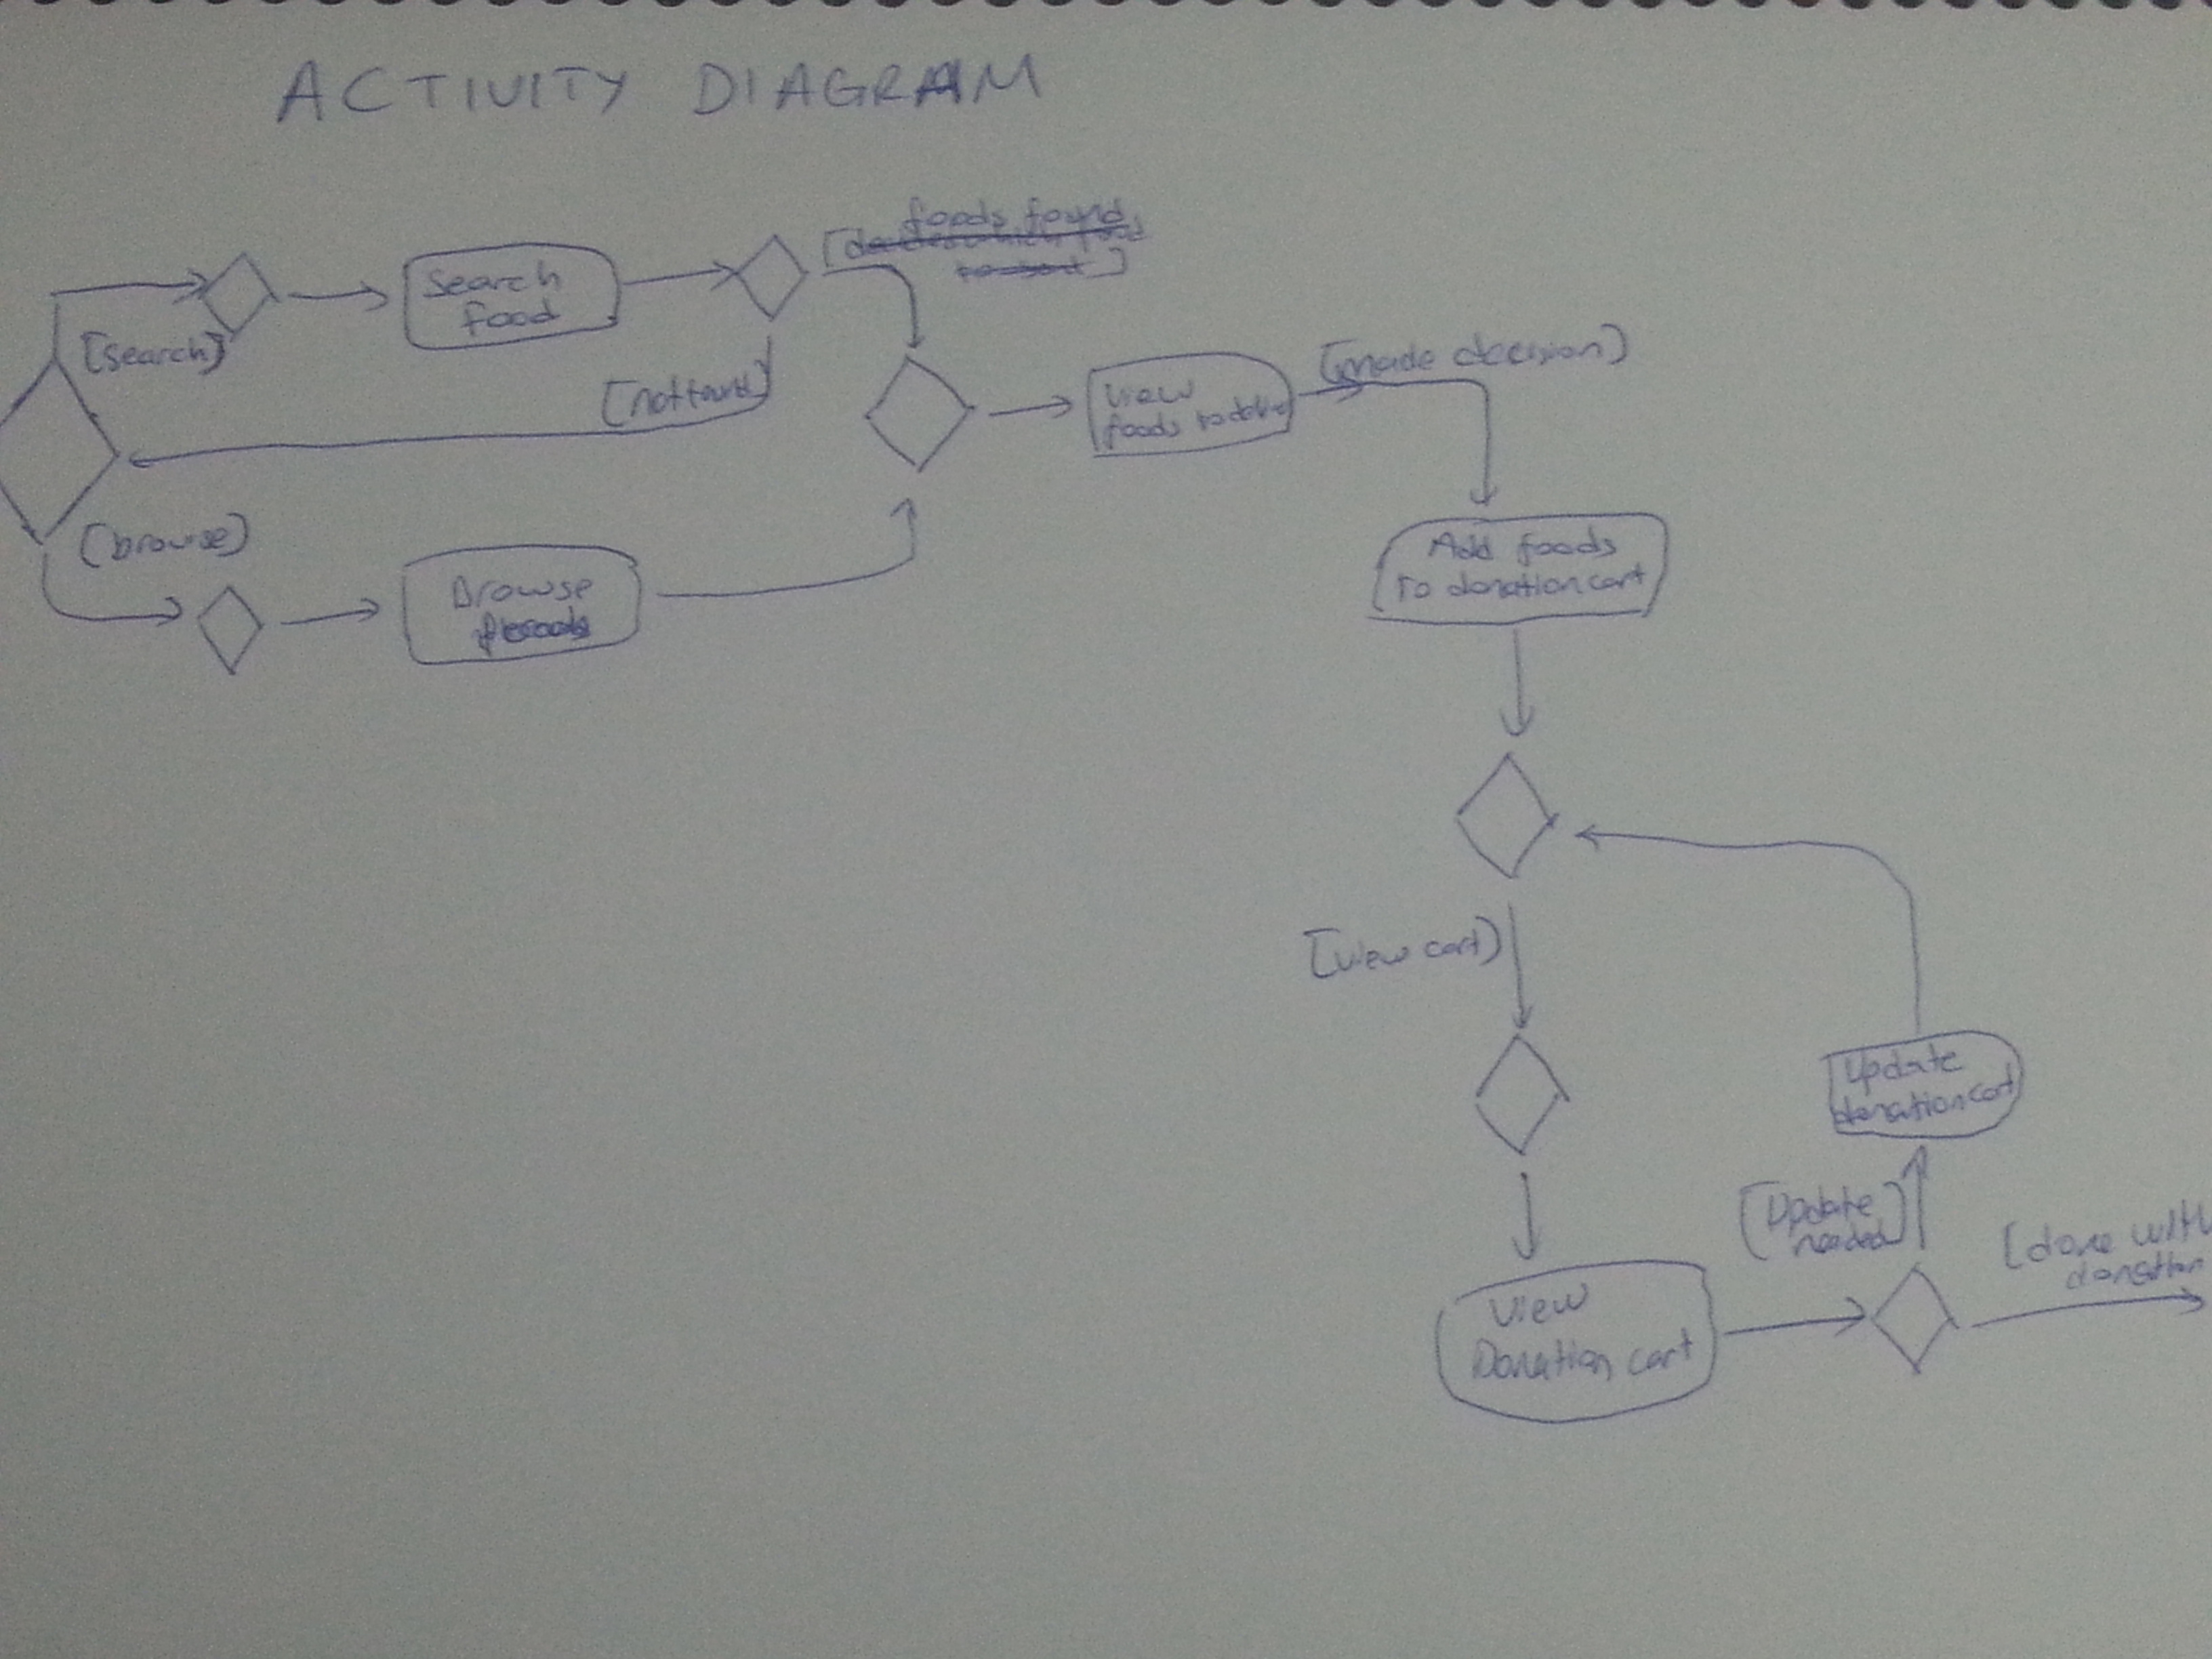 ACTIVITY DIAGRAM
[search]
(browse)
Search
food
Browse
foods found
[view cart]
View
[made decision)
Add foods
to donation cart
View
Donation cart
[Update
needed]
Update
donation cart
[done with
donation